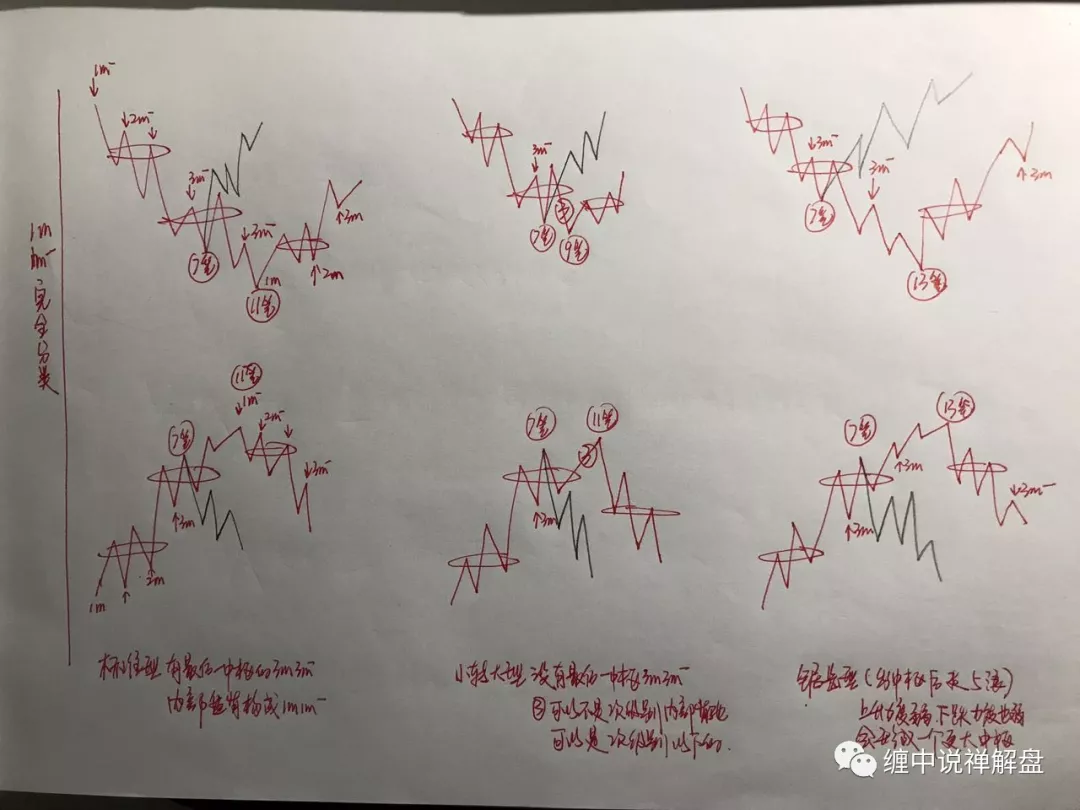 1m
1m¯完全分类
1m¯
↓2m¯
3m¯
7笔
↓3m¯
1m
11笔
↑2m
↑3m
3m¯
7笔
9笔
↓3m¯
3m¯
7笔
13笔
↑3m
11笔
↓1m¯
2m¯
7笔
↓3m¯
↑3m
2m
1m
7笔
11笔
↑3m
7笔
13笔
↑3m
↓3m¯
↑3m
标准型 有最后一中枢的3m3m¯
内部背驰构成1m1m¯
小转大型 没有最后一中枢3m3m¯
③可以不是次级别内部背驰
可以是次级别以下的.
锯齿型(中枢后走5浪)
上升力度弱,下跌力度也弱
会去做一个更大中枢
缠中说禅解盘